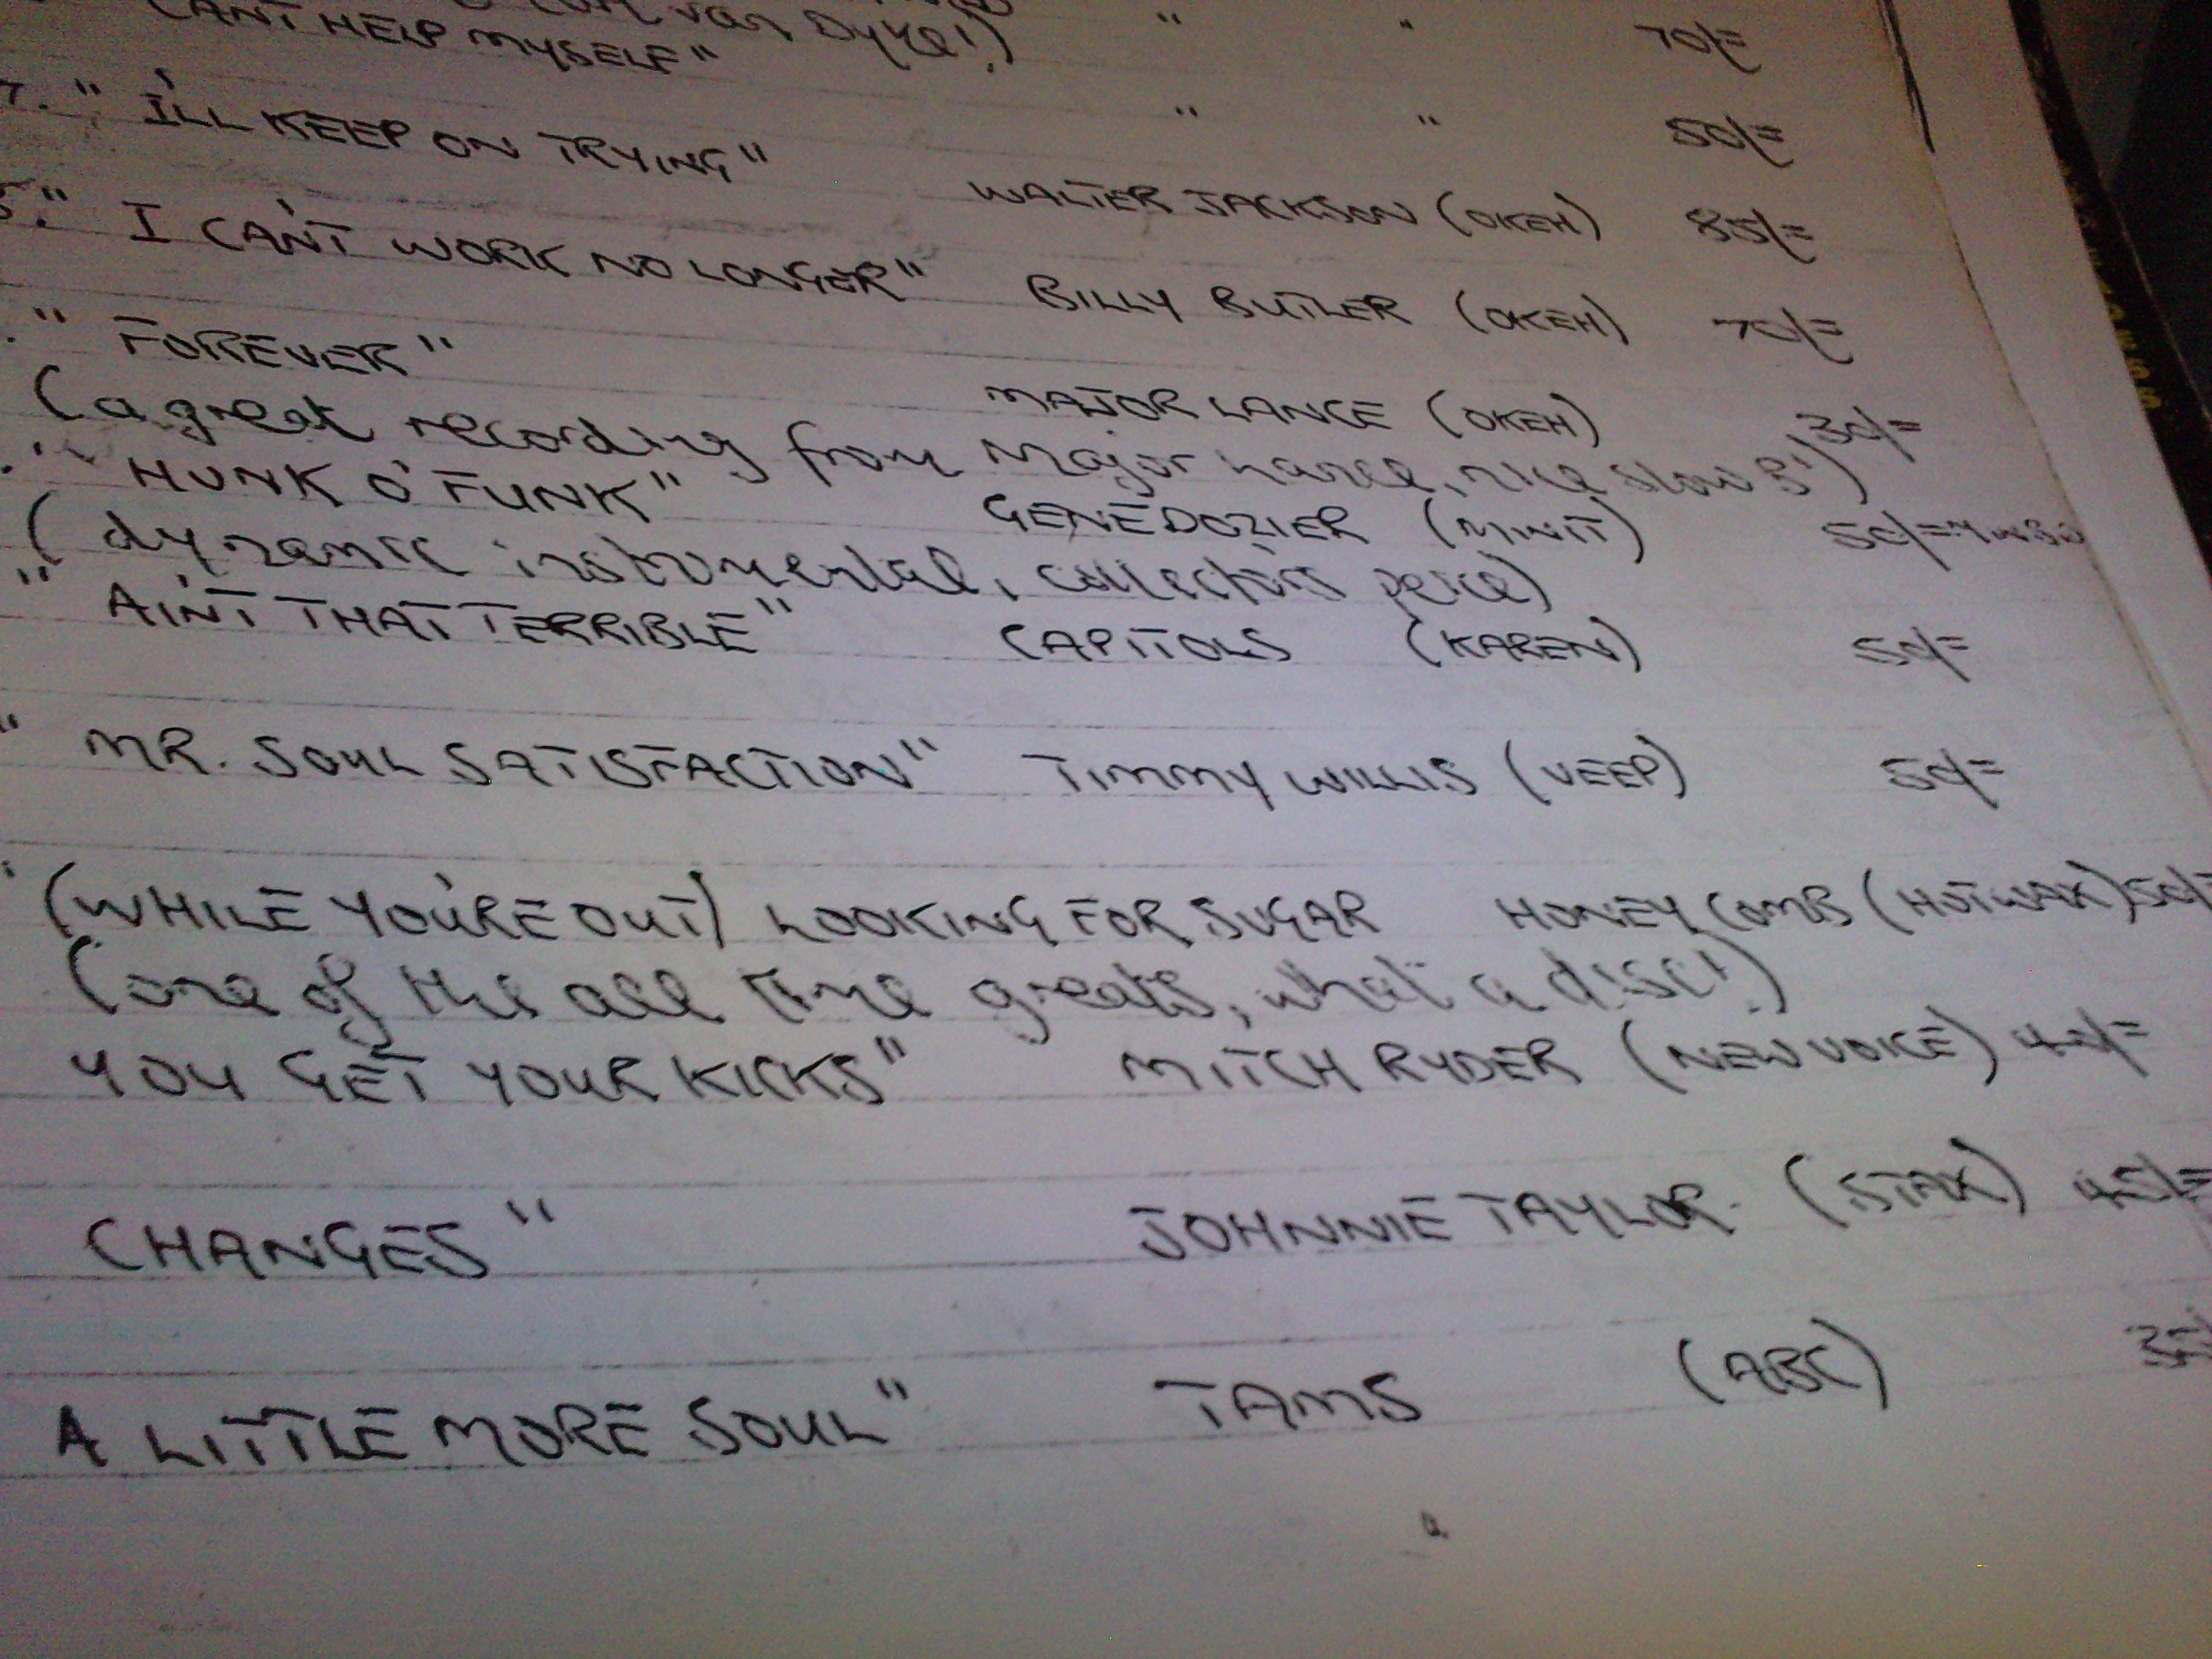 Van Dyke!) " " 70/=
CAN'T HELP MYSELF"
7. " I'LL KEEP ON TRYING" " " 50/=
" I CAN'T WORK NO LONGER" WALTER JACKSON (OKEH) 85/=
BILLY BUTLER (OKEH) 70/=
" FOREVER" MAJOR LANCE (OKEH) 30/=
(a great recording from Major Lance, nice slow B')
" HUNK O' FUNK" GENE DOZIER (MINIT) 50/=
(dynamic instrumental, collectors peice)
" AIN'T THAT TERRIBLE" CAPITOLS (KAREN) 50/=
" MR. SOUL SATISFACTION" TIMMY WILLIS (VEEP) 50/=
(WHILE YOU'RE OUT) LOOKING FOR SUGAR HONEY COMB (HOTWAX) 50/=
(one of the all time greats, what a disc!)
YOU GET YOUR KICKS" MITCH RYDER (NEW VOICE) 40/=
CHANGES" JOHNNIE TAYLOR. (STAX) 45/=
A LITTLE MORE SOUL" TAMS (ABC)